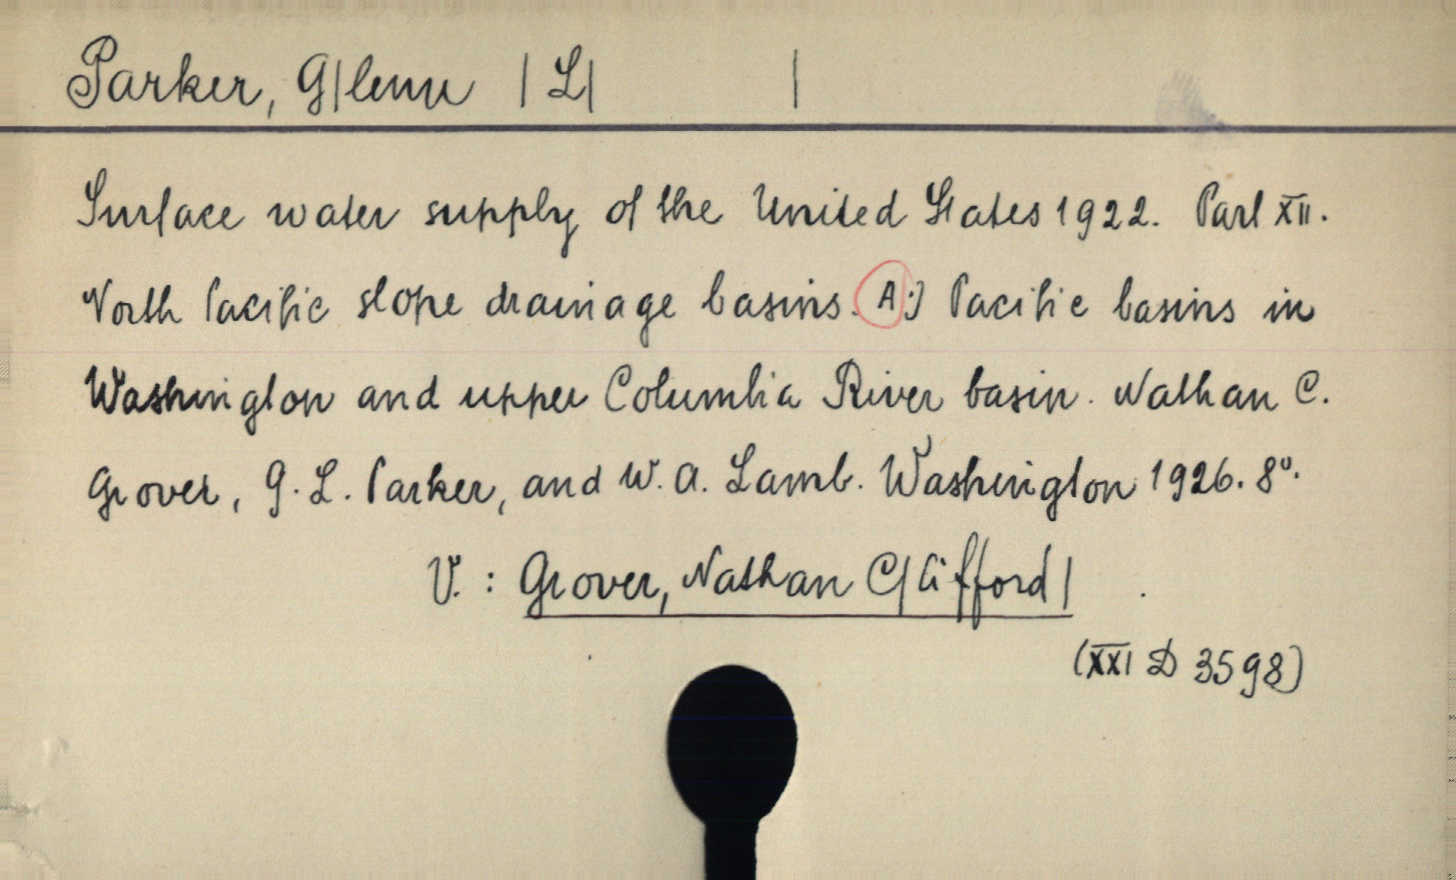 Parker, G|lenn | L| |
Surface water supply of the United States 1922. Part XII.
North Pacific slope drainage basins. A:) Pacific basins in
Washington and upper Columbia River basin. Nathan C.
Grover, G. L. Parker, and W. A. Lamb. Washington 1926. 8°.
V. : Grover, Nathan C|lifford|
(XXI D 3598)